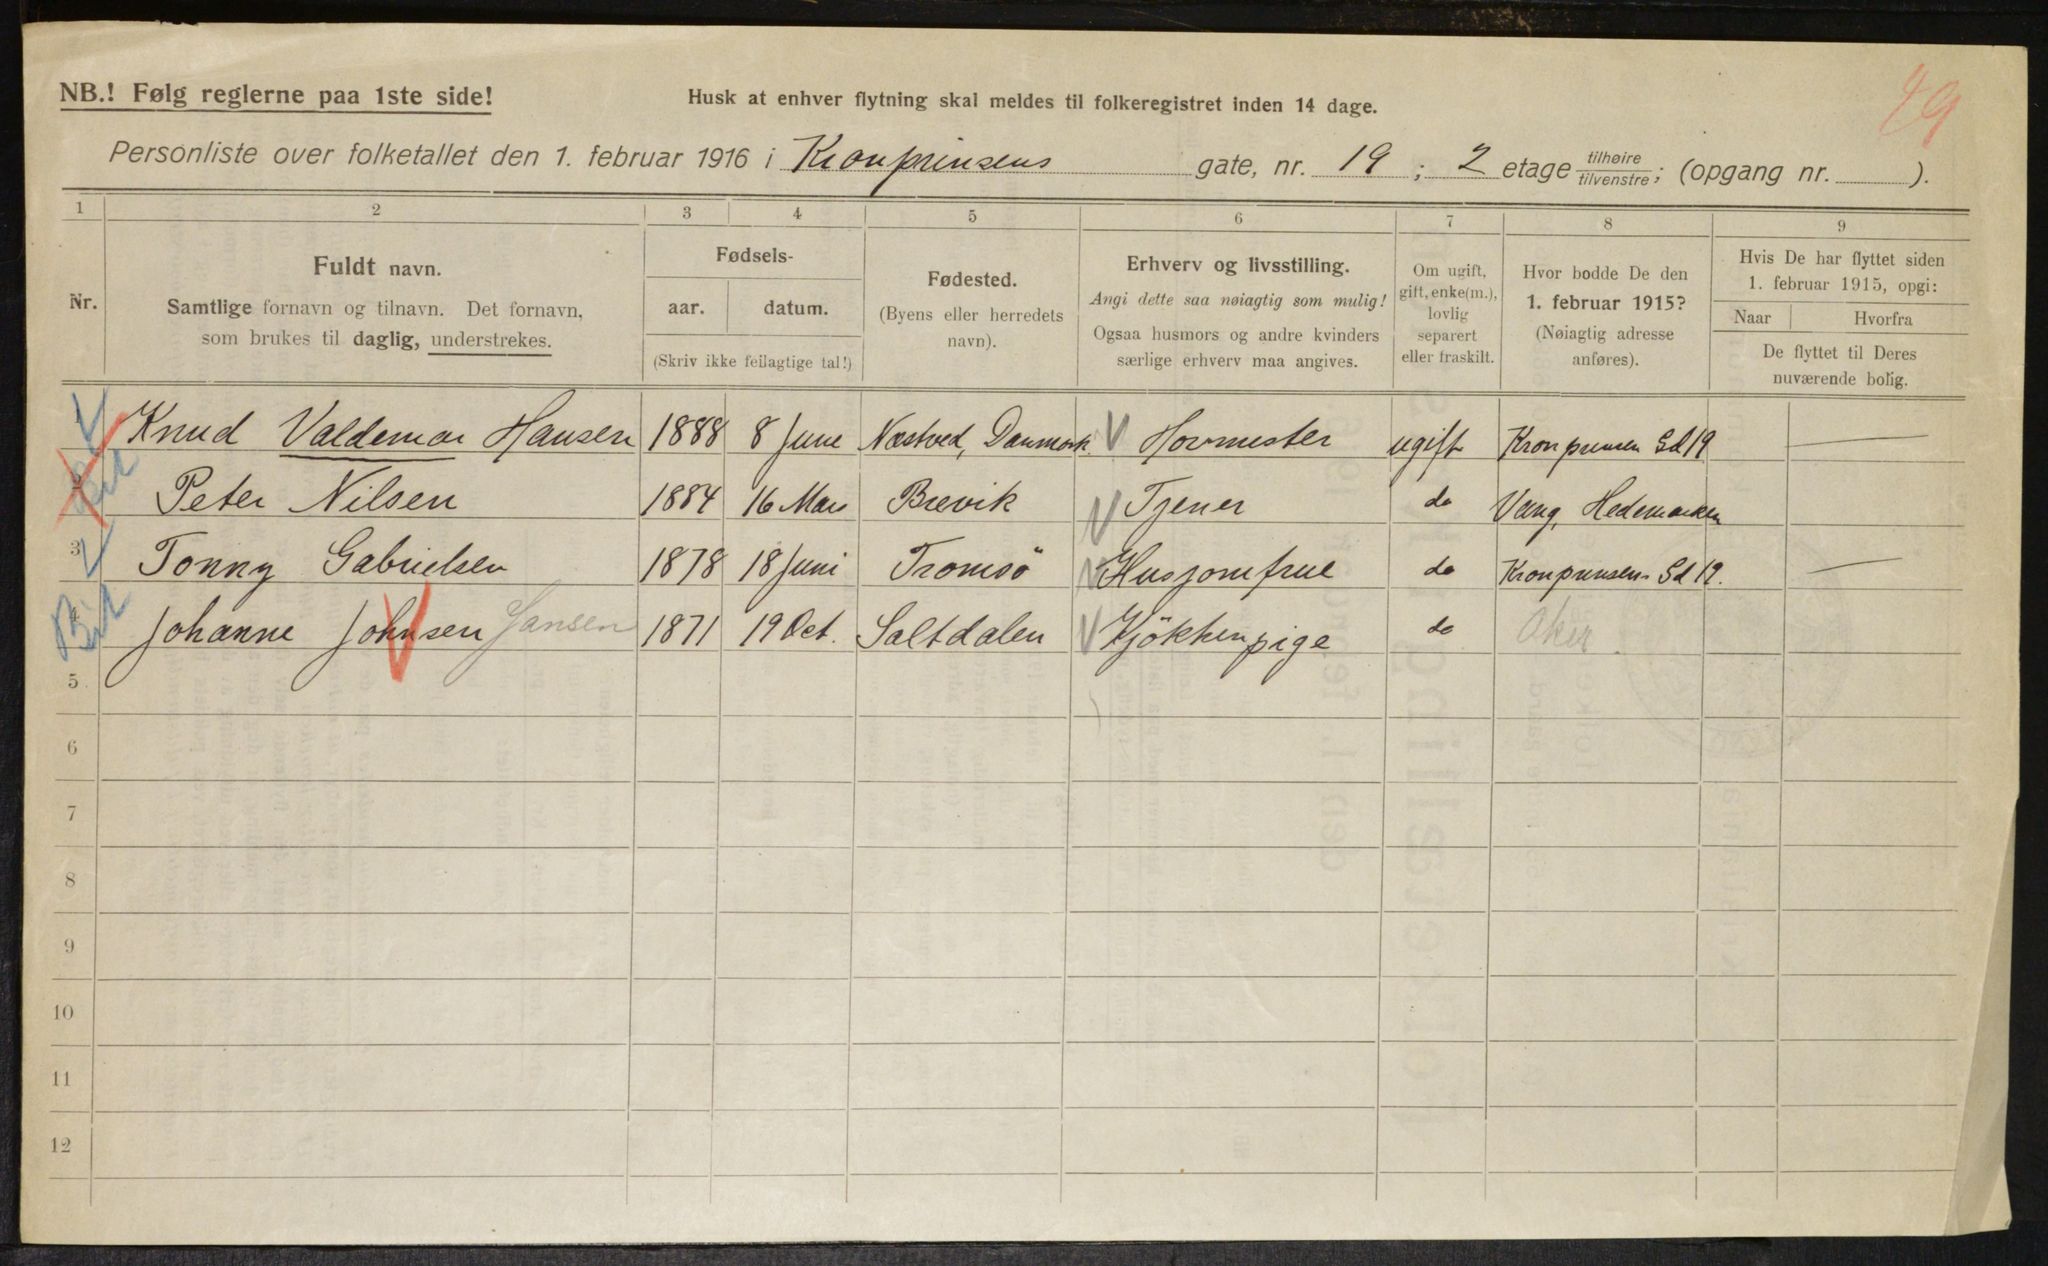 NB.! Følg reglerne paa 1ste side!
Husk at enhver flytning skal meldes til folkeregistret inden 14 dage.
49
Personliste over folketallet den 1. februar 1916 i Kronprinsens gate, nr. 19 ; 2 etage tilhøire tilvenstre ; (opgang nr. ).
1 2 3 4 5 6 7 8 9
Nr.
Fuldt navn.
Samtlige fornavn og tilnavn. Det fornavn,
som brukes til daglig, understrekes.
Fødsels-
aar. datum.
(Skriv ikke feilagtige tal!)
Fødested.
(Byens eller herredets
navn).
Erhverv og livsstilling.
Angi dette saa nøiagtig som mulig!
Ogsaa husmors og andre kvinders
særlige erhverv maa angives.
Om ugift,
gift, enke(m.),
lovlig
separert
eller fraskilt.
Hvor bodde De den
1. februar 1915?
(Nøiagtig adresse
anføres).
Hvis De har flyttet siden
1. februar 1915, opgi:
Naar Hvorfra
De flyttet til Deres
nuværende bolig.
1 Knud Valdemar Hansen 1888 8 June Næstved, Danmark. Hovmester ugift Kronprinsen Gd 19
2 Peter Nilsen 1884 16 Mars Brevik Tjener do Vang, Hedemarken
3 Tonny Gabrielsen 1878 18 Juni Tromsö Husjomfrue do Kronprinsens Gd 19.
4 Johanne Johnsen Jansen 1871 19 Oct. Saltdalen Kjökkenpige do Aker
5
6
7
8
9
10
11
12